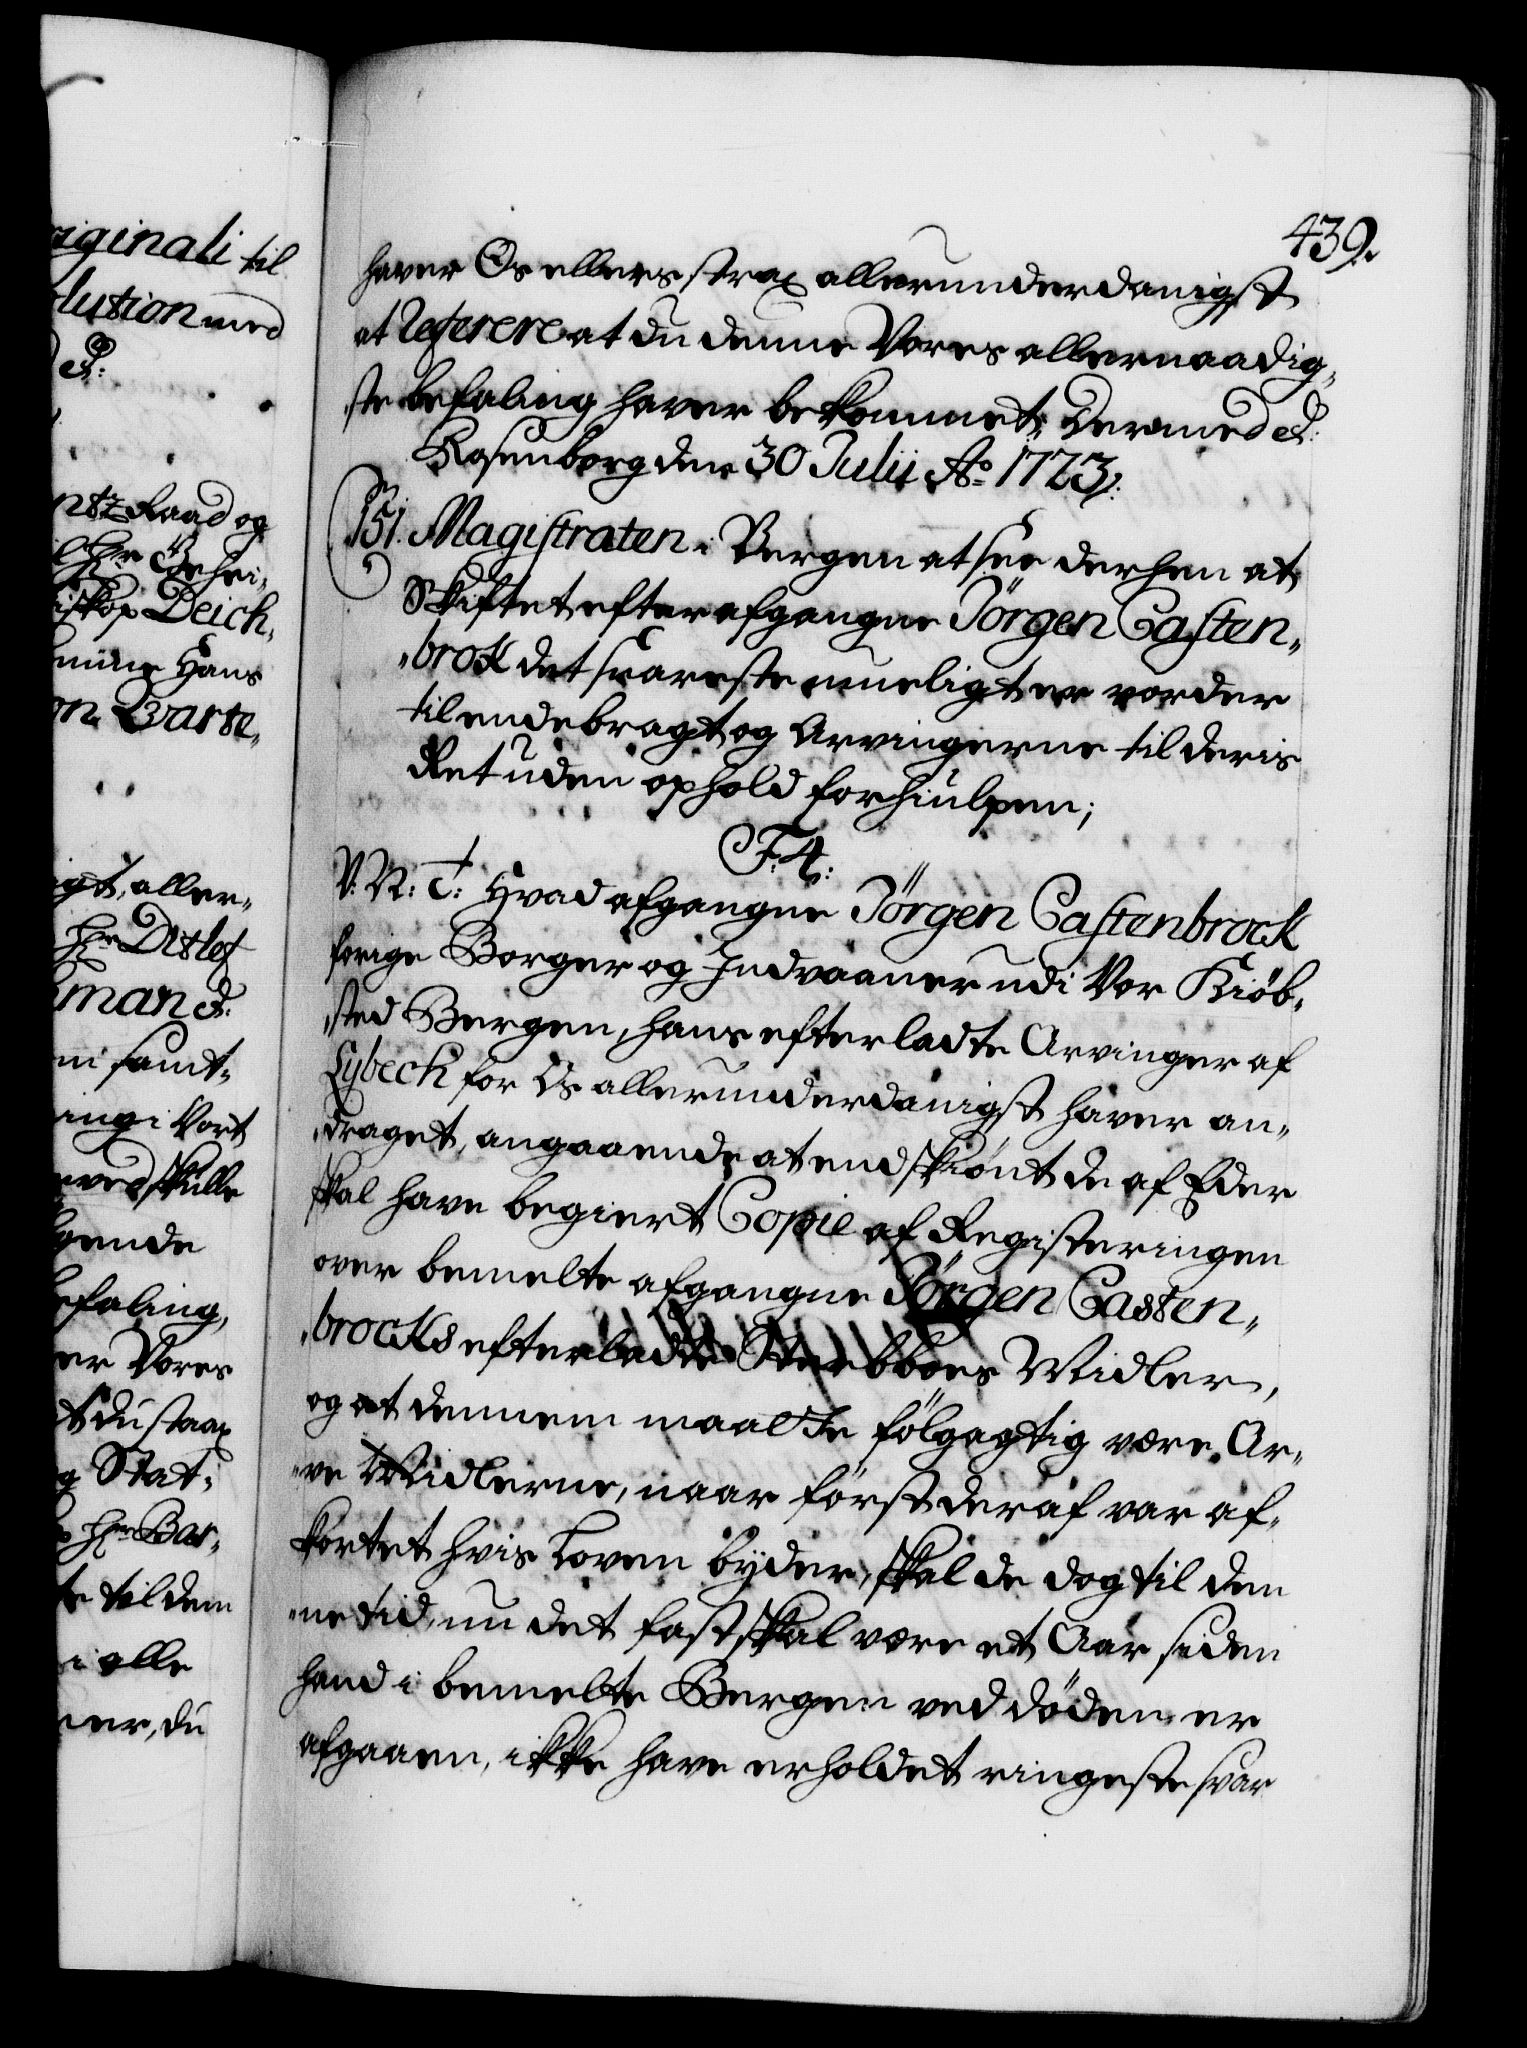 riginali til
lution med
d.
ntz Raad og
Hr Gehei-
iskop Deich,
mine Hans
on Barte,
igt, aller-
Hr Ditlef
man d.
ni samt-
ing i Vort
ved skulle
gende
efaling,
er Vores
t du strax
g Stat-
Hr Bar,
te til dem
i alle
er, du
439.
haver Os ellers strax allerunderdanigst
at Referere at du denne Vores allernaadig-
ste befaling haver bekommet; Dermed d.
Rosenborg den 30 Julii Ao 1723:
151. Magistraten i Bergen at see derhen at
Skiftet efter afgangne Jörgen Casten-
brok det snareste mueligt er vorder
til endebragt og Arvingerne til deris
Ret uden ophold forhiulpen;
F. 4.
V: N: T: Hvad afgangne Jörgen Castenbrock
forige Borger og Indvaaner udi Vor Kiöb-
sted Bergen, hans efterladte Arvinger af
Lybeck for Os allerunderdanigst haver an-
draget, angaaende, at endskiönt de af Eder
skal have begiert Copie af Registeringen
over bemelte afgangne Jörgen Casten-
brocks efterladte Sterbboes Midler,
og at dennem maatte fölgagtig være Ar-
ve Midlerne, naar först deraf var af-
kortet hvis Loven byder, skal de dog til den
ne tid, nu det fast skal være et Aar siden
hand i bemelte Bergen ved döden er
afgaaen, ikke have erholdet ringeste svar